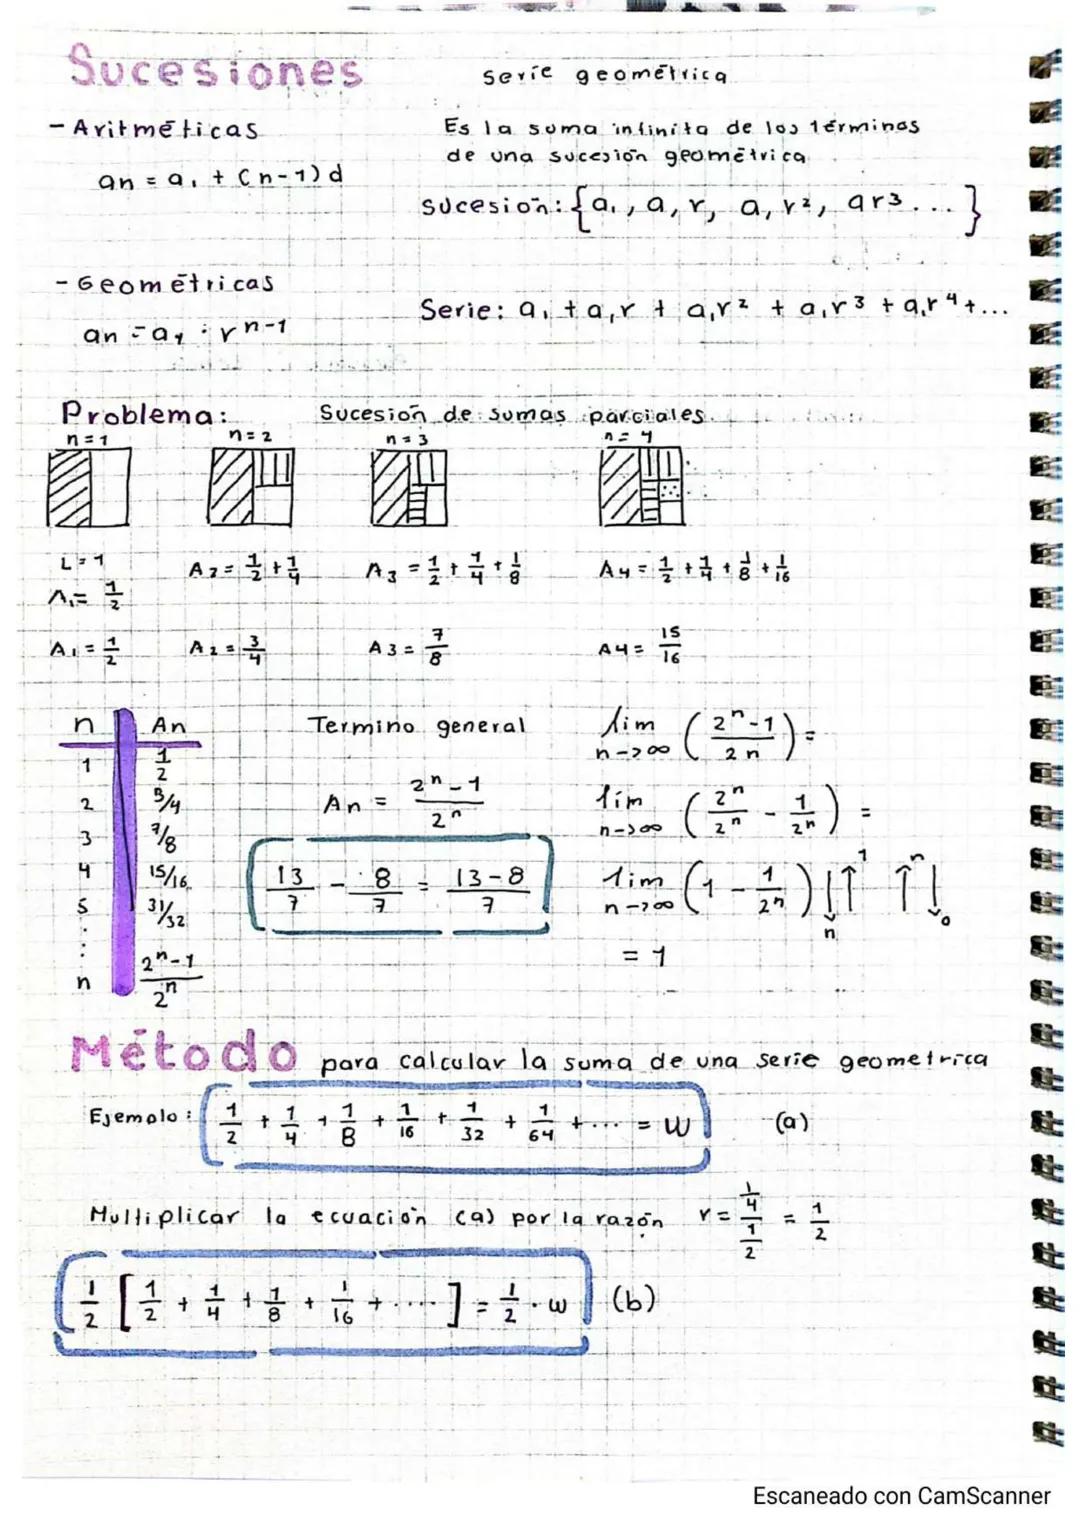 Sucesiones
Serie geométrica
- Aritméticas
an = a₁ + (n-1)d
Es la suma infinita de los términos
de una sucesión geométrica
sucesión: {a₁, a₁r, a₁r², ar3...}
- Geométricas
an = a₁ · r^n-1
Serie: a₁ + a₁r + a₁r² + a₁r³ + a₁r⁴ + ...
Problema:
Sucesión de sumas parciales.
n=1 n=2 n=3 n=4
L=1
A₁= 1/2
A2= 1/2 + 1/4
A3 = 1/2 + 1/4 + 1/8
A4= 1/2 + 1/4 + 1/8 + 1/16
A₁ = 1/2
A2 = 3/4
A3 = 7/8
A4= 15/16
n An
1 1/2
2 3/4
3 7/8
4 15/16
5 31/32
⋮
n 2^n-1/2^n
Termino general
An = 2^n-1/2^n
13/7 - 8/7 = 13-8/7
lim n->∞ (2^n-1/2n) =
lim n->∞ (2^n/2^n - 1/2^n) =
lim n->∞ (1 - 1/2^n) ↓↑ 1 n ↑ n ↓ 0
= 1
Método para calcular la suma de una serie geometrica
Ejemplo: 1/2 + 1/4 + 1/8 + 1/16 + 1/32 + 1/64 + ... = w (a)
Multiplicar la ecuación (a) por la razón r = 1/4/1/2 = 1/2
1/2 [1/2 + 1/4 + 1/8 + 1/16 + ....] = 1/2 · w (b)
Escaneado con CamScanner